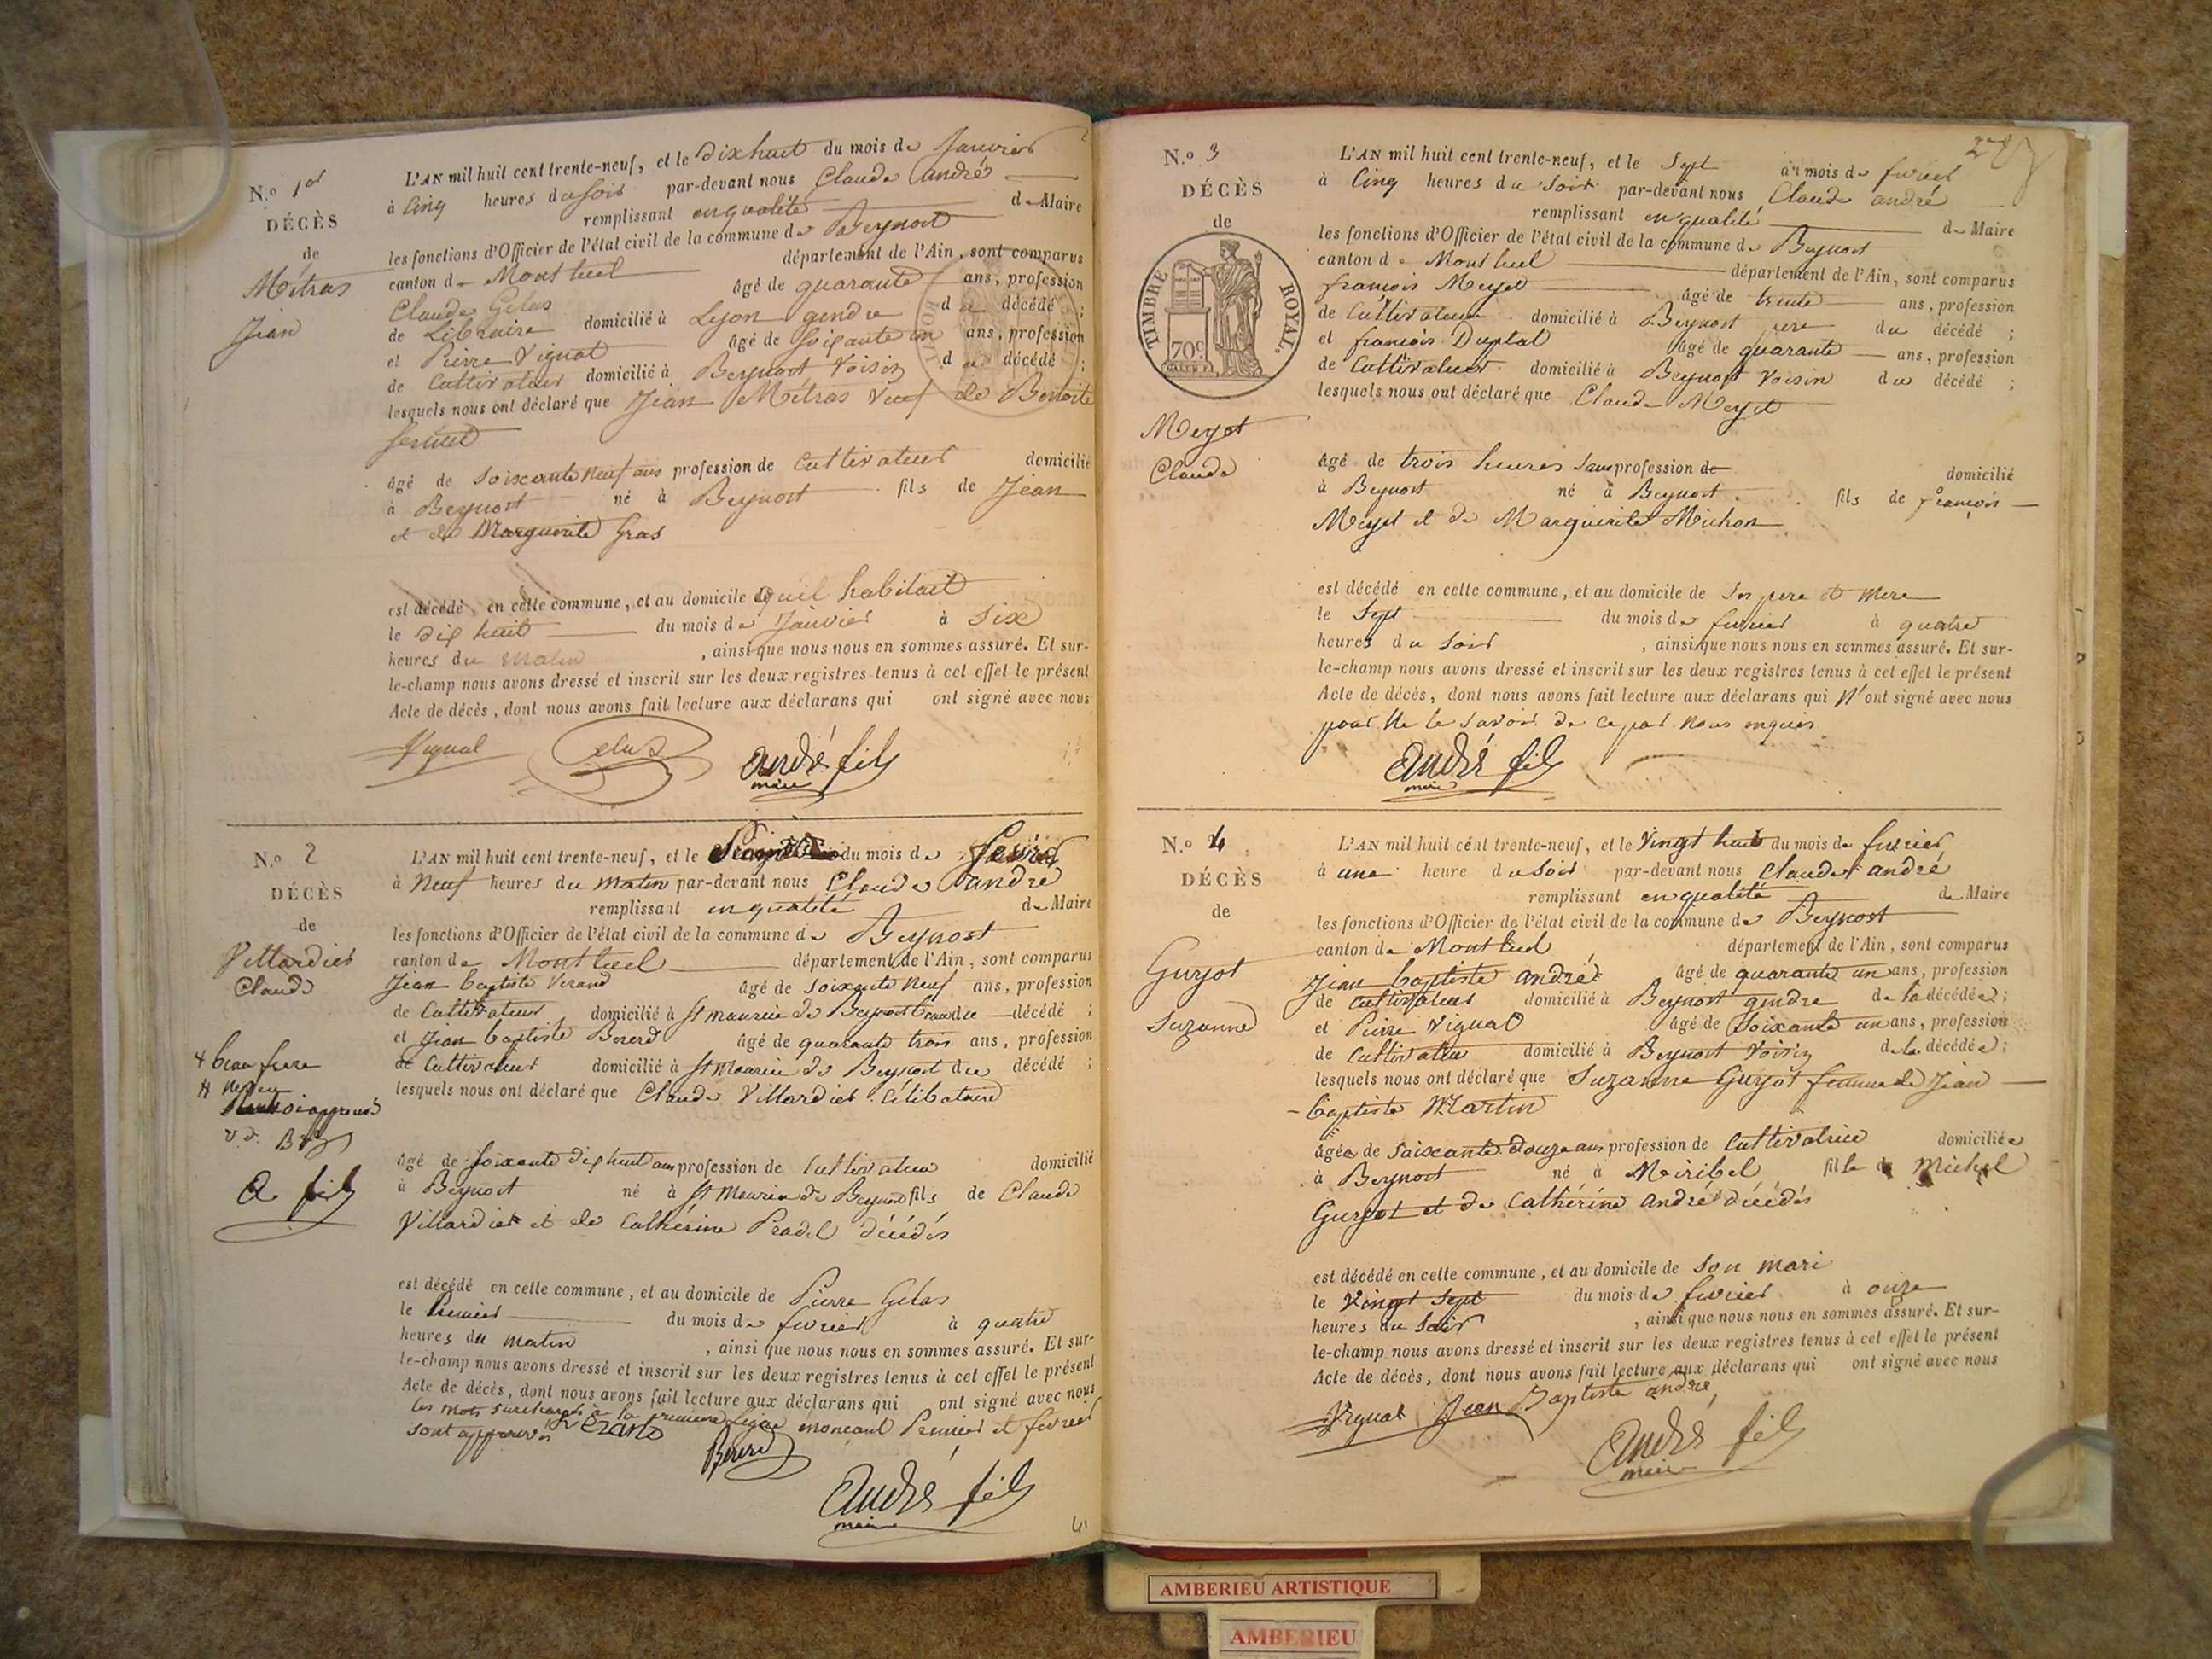 N.o 1er
DÉCÈS
de
Métras
Jean
L'AN mil huit cent trente-neuf, et le dix huit du mois de Janvier
à Cinq heures du soir par-devant nous Claude André
remplissant en qualité de Maire
les fonctions d'Officier de l'état civil de la commune de Beynost
canton de Montluel département de l'Ain, sont comparus
Claude Gelas âgé de quarante ans, profession
de Libraire domicilié à Lyon gendre du décédé ;
et Pierre Vignat âgé de soixante un ans, profession
de Cultivateur domicilié à Beynost Voisin du décédé ;
lesquels nous ont déclaré que Jean Métras veuf de Benoite
âgé de soixante neuf ans profession de Cultivateur domicilié
à Beynost né à Beynost fils de Jean
et de Marguerite Gras
est décédé en cette commune, et au domicile qu'il habitait
le dix huit du mois de Janvier à six
heures du matin , ainsi que nous nous en sommes assuré. Et sur-
le-champ nous avons dressé et inscrit sur les deux registres tenus à cet effet le présent
Acte de décès, dont nous avons fait lecture aux déclarans qui ont signé avec nous
Vignat Gelas André fils
maire
N.o 2
DÉCÈS
de
Villardier
Claude
+ beau frere
# neveu
A fils
L'AN mil huit cent trente-neuf, et le Premier du mois de fevrier
à Neuf heures du matin par-devant nous Claude André
remplissant en qualité de Maire
les fonctions d'Officier de l'état civil de la commune de Beynost
canton de Montluel département de l'Ain, sont comparus
Jean baptiste Verand âgé de soixante neuf ans, profession
de Cultivateur domicilié à St maurice de Beynost du décédé ;
et Jean baptiste Bererd âgé de quarante trois ans, profession
de Cultivateur domicilié à St Maurice de Beynost du décédé ;
lesquels nous ont déclaré que Claude Villardier Célibataire
âgé de soixante dix huit ans profession de Cultivateur domicilié
à Beynost né à St Maurice de Beynost fils de Claude
Villardier et de Cathérine Pradel décédés
est décédé en cette commune, et au domicile de Pierre Gelas
le Premier du mois de fevrier à quatre
heures du matin , ainsi que nous nous en sommes assuré. Et sur-
le-champ nous avons dressé et inscrit sur les deux registres tenus à cet effet le présent
Acte de décès, dont nous avons fait lecture aux déclarans qui ont signé avec nous
les mots surchargés à la premiere ligne énonçant Premier et fevrier
sont approuvés
Bererd
André fils
maire
N.o 3
DÉCÈS
de
TIMBRE ROYAL.
70c
Meyet
Claude
L'AN mil huit cent trente-neuf, et le Sept du mois de fevrier
à Cinq heures du soir par-devant nous Claude André
remplissant en qualité de Maire
les fonctions d'Officier de l'état civil de la commune de Beynost
canton de Montluel département de l'Ain, sont comparus
françois Meyet âgé de trente ans, profession
de Cultivateur domicilié à Beynost pere du décédé ;
et françois Duplat âgé de quarante ans, profession
de Cultivateur domicilié à Beynost Voisin du décédé ;
lesquels nous ont déclaré que Claude Meyet
âgé de trois heures sans profession de domicilié
à Beynost né à Beynost fils de françois
Meyet et de Marguerite Michon
est décédé en cette commune, et au domicile de ses pere et mere
le Sept du mois de fevrier à quatre
heures du soir , ainsi que nous nous en sommes assuré. Et sur-
le-champ nous avons dressé et inscrit sur les deux registres tenus à cet effet le présent
Acte de décès, dont nous avons fait lecture aux déclarans qui N'ont signé avec nous
pour Ne le savoir de ce par nous enquis
André fils
maire
N.o 4
DÉCÈS
de
Guyot
Suzanne
L'AN mil huit cent trente-neuf, et le Vingt huit du mois de fevrier
à une heure du soir par-devant nous Claude André
remplissant en qualité de Maire
les fonctions d'Officier de l'état civil de la commune de Beynost
canton de Montluel département de l'Ain, sont comparus
Jean baptiste André âgé de quarante un ans, profession
de Cultivateur domicilié à Beynost gendre de la décédée ;
et Pierre Vignat âgé de soixante un ans, profession
de Cultivateur domicilié à Beynost Voisin de la décédée ;
lesquels nous ont déclaré que Suzanne Guyot femme de Jean
baptiste Martin
âgée de soixante douze ans profession de Cultivatrice domiciliée
à Beynost né à Miribel fille de Michel
Guyot et de Cathérine André décédés
est décédé en cette commune, et au domicile de son mari
le Vingt sept du mois de fevrier à onze
heures du soir , ainsi que nous nous en sommes assuré. Et sur-
le-champ nous avons dressé et inscrit sur les deux registres tenus à cet effet le présent
Acte de décès, dont nous avons fait lecture aux déclarans qui ont signé avec nous
Vignat Jean Baptiste andré
André fils
maire
AMBERIEU ARTISTIQUE
AMBERIEU